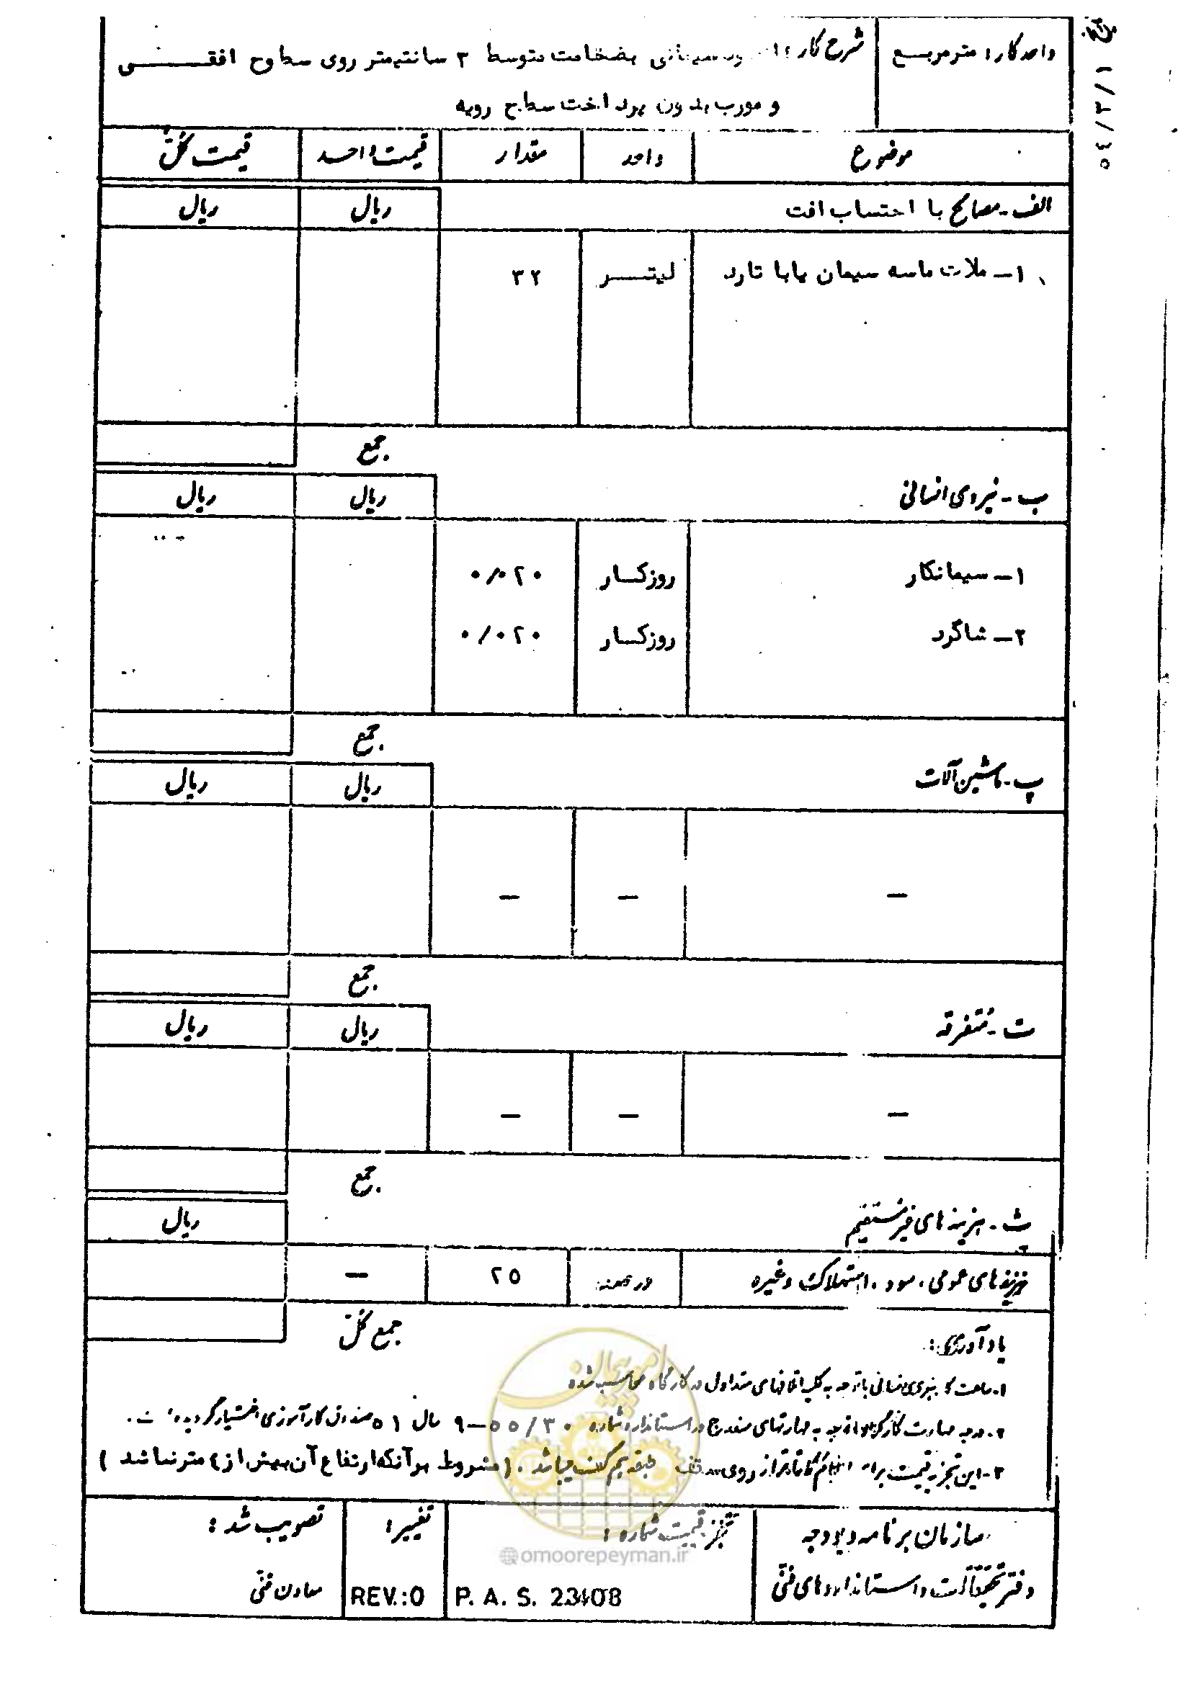 تاریخ ٥٤/٣/١
واحد کار : مترمربع
شرح کار : اندود سیمانی بضخامت متوسط ٣ سانتیمتر روی سطوح افقی
و مورب بدون پرداخت سطح رویه
موضوع واحد مقدار قیمت واحد قیمت کل
الف - مصالح با احتساب افت ریال ریال
١- ملات ماسه سیمان یا با تارد لیتر ٣٢
جمع
ب - نیروی انسانی ریال ریال
١- سیمانکار روزکار ٠/٠٢٠
٢- شاگرد روزکار ٠/٠٢٠
جمع
پ - ماشین آلات ریال ریال
— — —
جمع
ت - متفرقه ریال ریال
— — —
جمع
ث - هزینه های غیر مستقیم ریال
هزینه های عمومی ، سود ، استهلاک و غیره درصد ٢٥ —
جمع کل
یادآوری :
١- ساعت کار نیروی انسانی با توجه به کلیه اتلافهای متداول در کارگاه محاسبه شده
٢- درجه مهارت کارگر با توجه به مهارتهای مندرج در استاندارد شماره ٩-٥٥/٣٠ سال ٥١ صندوق کارآموزی اختیار گردیده است .
٣- این تجزیه قیمت برای انجام کار تا تراز روی سقف طبقه همکف میباشد . ( مشروط بر آنکه ارتفاع آن بیش از ٤ متر نباشد )
سازمان برنامه و بودجه
دفتر تحقیقات و استانداردهای فنی
تجزیه قیمت شماره :
P. A. S. 23408
تغییر :
REV.:0
تصویب شد :
معاون فنی
امور پیمان
@omoorepeyman.ir